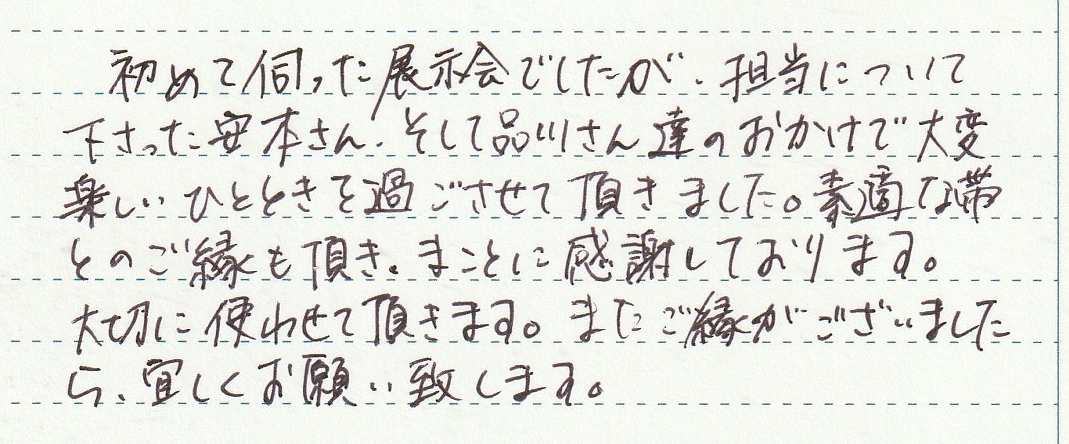 初めて伺った展示会でしたが、担当について
下さった安本さん、そして品川さん達のおかけで大変
楽しいひとときを過ごさせて頂きました。素適な帯
とのご縁も頂き、まことに感謝しております。
大切に使わせて頂きます。またご縁がございました
ら、宜しくお願い致します。